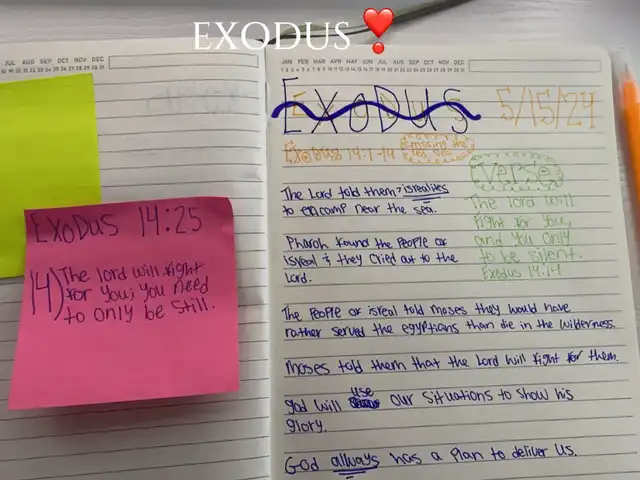 EXODUS❣️
JUL AUG SEP OCT NOV DEC
JAN FEB MAR APR MAY JUN JUL AUG SEP OCT NOV DEC
Exodus
5/15/24
Exodus 14:1-14
Crossing the
red sea
The Lord told them → isrealites
to encamp near the sea.
Verse
The lord will
fight for you,
and you only
to be silent.
Exodus 14:14
Pharoh found the People of
isreal & they cried out to the
Lord.
The People of isreal told moses they would have
rather served the egyptians than die in the wilderness.
Moses told them that the Lord will fight for them.
god will use our situations to show his
glory.
God always has a Plan to deliver us.
EXODUS 14:25
14) The lord will fight
for you; you need
to only be still.